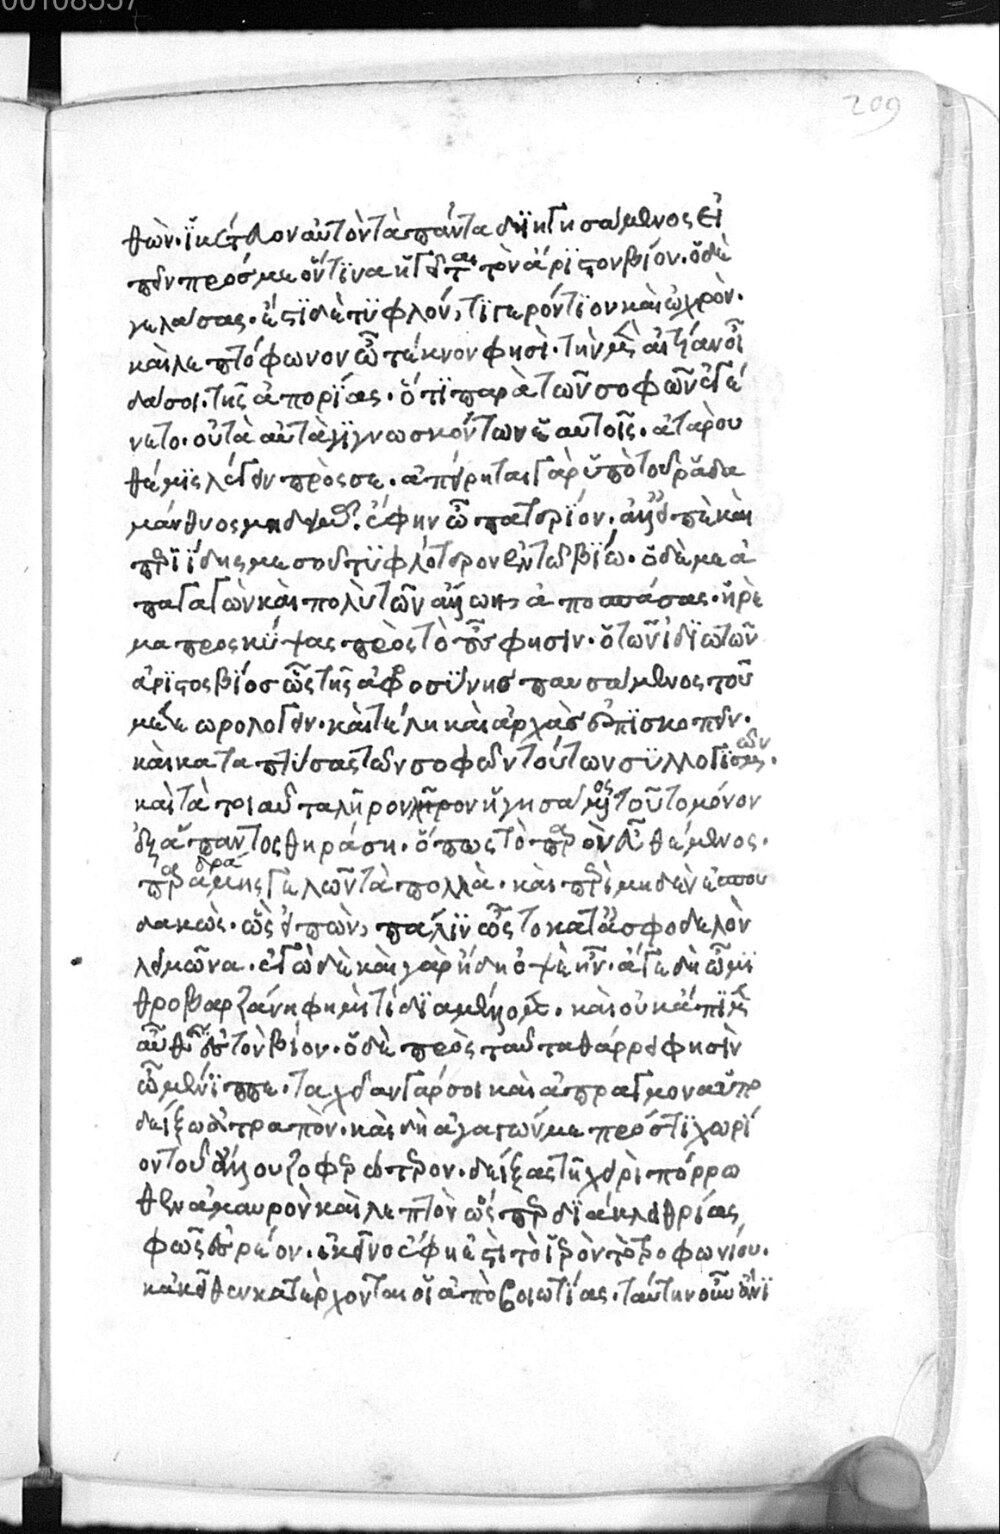 209
θὼν. ἱκέτευον αὐτὸν τὰ πάντα διηγησάμενος εἰ
πεῖν πρός με ὅντινα ἡγεῖται τὸν ἄριστον βίον. ὁ δὲ
γελάσας. ἔστι δὲ τυφλόν, τι γερόντιον καὶ ὠχρὸν.
καὶ λεπτόφωνον ὦ τέκνον φησὶ. τὴν μὲν αἰτίαν οἶ
δα σοι. τῆς ἀπορίας. ὅτι παρὰ τῶν σοφῶν ἐγέ
νετο. οὐ τὰ αὐτὰ γιγνωσκόντων ἑαυτοῖς. ἀτὰρ οὐ
θέμις λέγειν πρὸς σε. ἀπείρηται γὰρ ὑπὸ τοῦ ῥαδα
μάνθυος μηδαμῶς. ἔφην ὦ πατέριον. ἀλλ' εἰπὲ καὶ
μὴ περιίδῃς με σοῦ τυφλότερον ἐν τῷ βίῳ. ὁ δὲ με ἀ
παγαγὼν καὶ πολὺ τῶν ἄλλων, ἀποσπάσας. ἠρέ
μα προσκύψας πρὸς τὸ οὖς φησιν. ὁ τῶν ἰδιωτῶν
ἄριστος βίος ὡς τῆς ἀφροσύνης παυσάμενος τοῦ
μετεωρολογεῖν. καὶ τέλη καὶ ἀρχὰς ἐπισκοπεῖν.
καὶ καταπτύσας τῶν σοφῶν τούτων συλλογισμῶν.
καὶ τὰ τοιαῦτα λῆρον ἡγησάμενος τοῦτο μόνον
ἐξ ἅπαντος θηράσῃ. ὅπως τὸ παρὸν εὖ θέμενος.
παραδράμῃς γελῶν τὰ πολλὰ. καὶ περὶ μηδὲν ἐσπου
δακὼς. ὣς εἰπὼν, πάλιν ὦρτο κατ' ἀσφοδελὸν
λειμῶνα. ἐγὼ δὲ καὶ γὰρ ἤδη ὀψὲ ἦν. ἄγε δὴ ὦ μι
θροβαρζάνη φημὶ τί διαμέλλομεν. καὶ οὐκ ἄπιμεν
αὖθις εἰς τὸν βίον. ὁ δὲ πρὸς ταῦτα θάρρει φησὶν
ὦ μένιππε. ταχεῖαν γάρ σοι καὶ ἀπράγμονα ὑπο
δείξω ἀτραπὸν. καὶ δὴ ἀγαγών με πρός τι χωρί
ον τοῦ ἄλλου ζοφερώτερον. δείξας τῇ χειρὶ πόρρω
θεν ἀμαυρὸν καὶ λεπτὸν ὥσπερ διὰ κλειθρίας
φῶς εἰσρέον. ἐκεῖνο ἔφη ἐστὶ τὸ ἱερὸν τὸ τροφωνίου.
κἀκεῖθεν κατέρχονται οἱ ἀπὸ βοιωτίας. ταύτην οὖν ἄνι